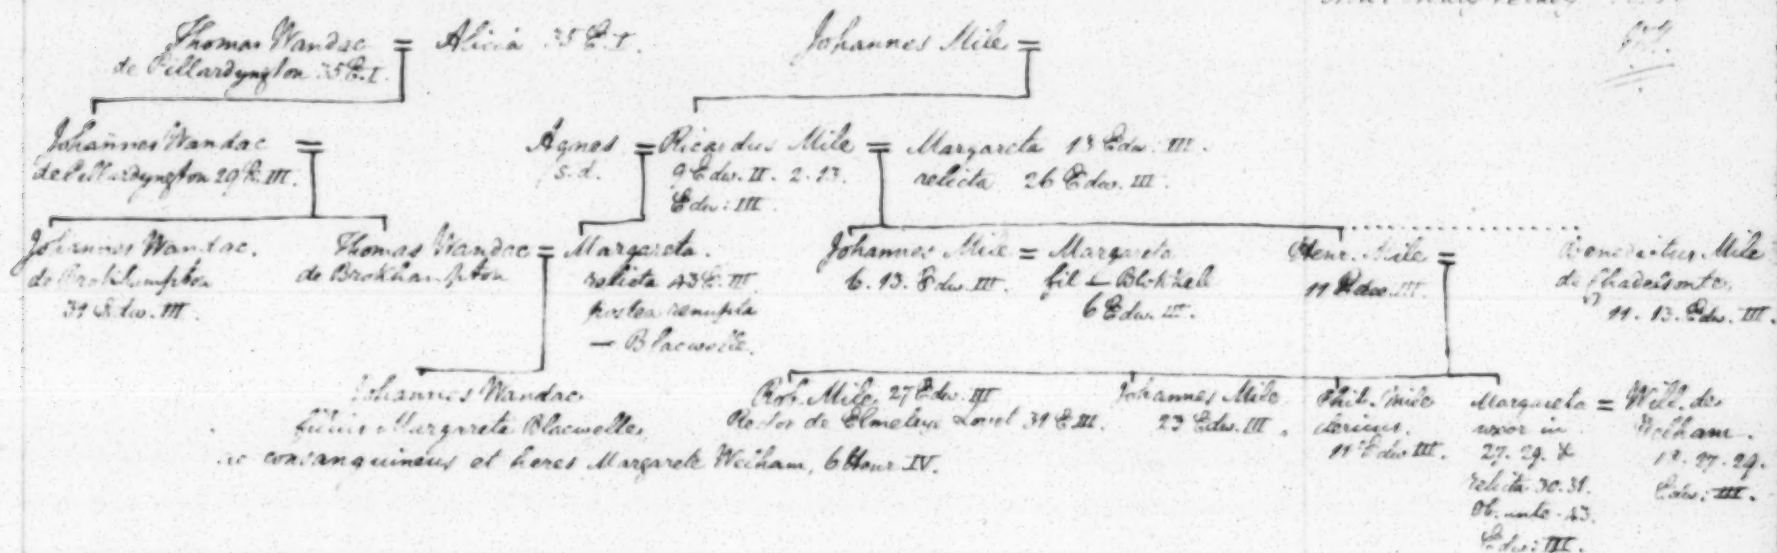 Thomas Wandac = Alicia 35 E. I.
de Pillardyngton 35 E. I.
Johannes Mile =
Johannes Wandac =
de Pillardyngton 29 E. III.
Agnes = Ricardus Mile = Margareta 18 Edw. III.
s. d.
9 Edw. II. 2. 13.
Edw: III.
relicta 26 Edw. III.
Johannes Wandac.
de
31 Edw. III.
Thomas Wandac = Margareta.
de Brokhampton
relicta 43 E. III
postea renupta
— Blacwelle.
Johannes Mile = Margareta
6. 13. Edw. III.
fil —
6 Edw. III.
Henr. Mile =
11 Edw. III.
Benedictus Mile
de
11. 13. Edw. III.
Johannes Wandac
filius Margarete Blacwelle,
ac consanguineus et heres Margarete Welham, 6 Henr IV.
Rob. Mile, 27 Edw. III
Rector de Elmeleye Lovet 31 E III.
Johannes Mile
23 Edw. III.
Phil. Mile
clericus.
11 Edw III.
Margareta = Will. de
uxor in
27. 29. &
relicta 30. 31.
Ob. ante 43.
Edw: III.
Welham.
18. 27. 29.
Edw: III.